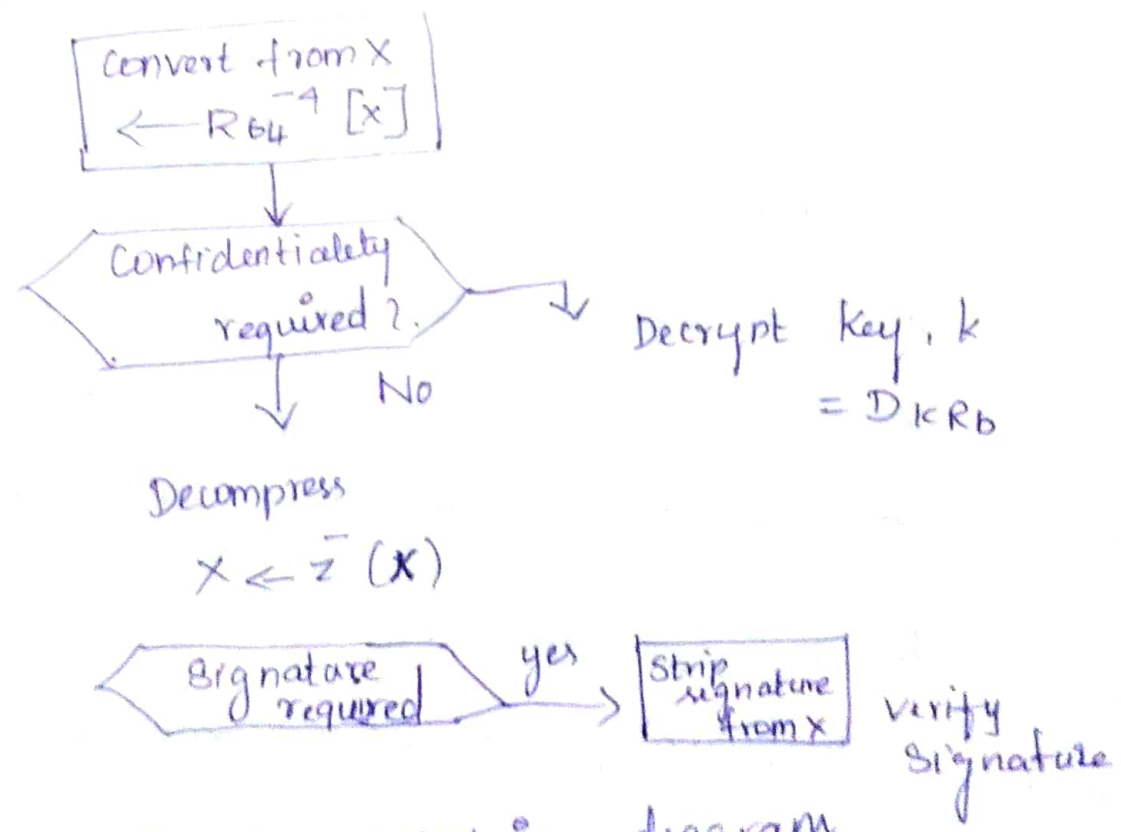 Convert from X
← R64⁻⁴ [x]
Confidentialety
required ?.
No
Decrypt Key, k
= D K R b
Decompress
X ← z⁻ (X)
Signature
required
yes
Strip
signature
from X
verify
signature
diagram